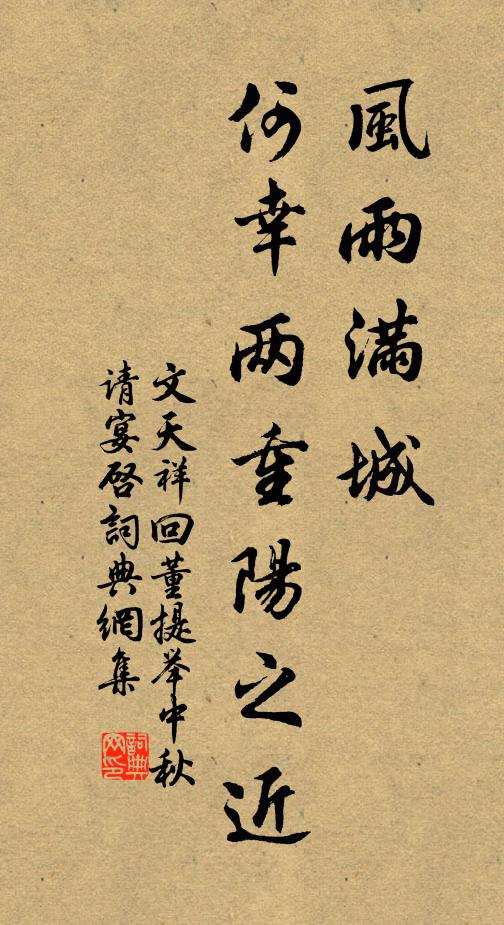 風雨满城
何幸两重陽之近
文天祥回董提举中秋
请宴啓詞典網集
詞典網印